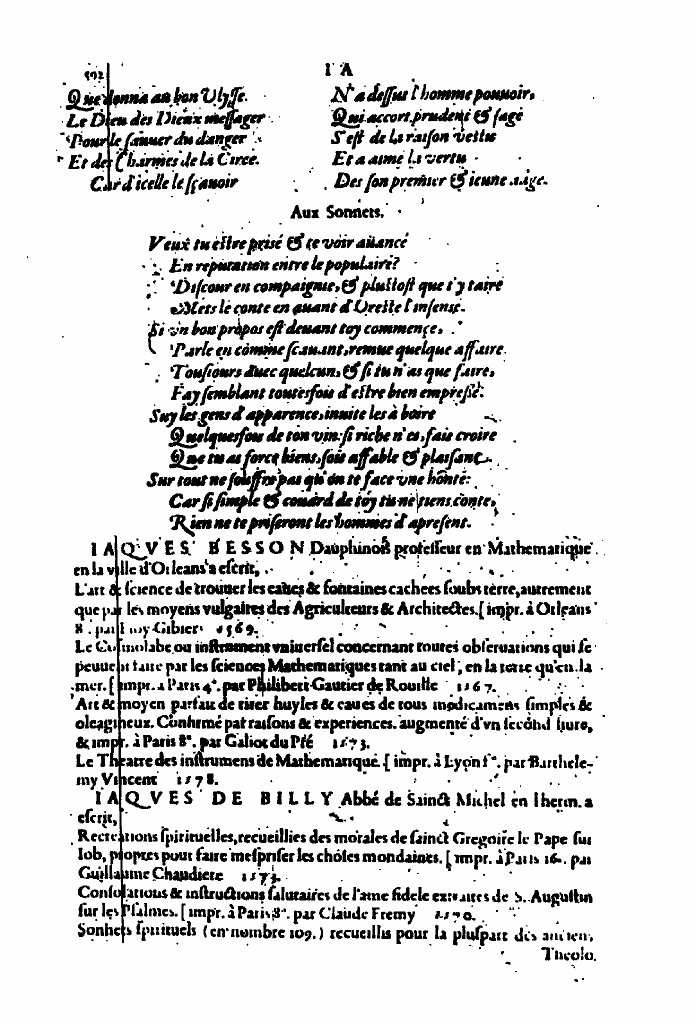 592 I A
Que donna au bon Ulysse.
Le Dieu des Dieux messager
Pour le sauuer du danger
Et des Charmes de la Circe.
Car d'icelle le sçauoir
N'a dessus l'homme pouuoir,
Qui accort prudent & sage
S'est de la raison vestu
Et a aimé la vertu
Des son premier & ieune aage.
Aux Sonnets.
Veux tu estre prisé & te voir auancé
En reputation entre le populaire?
Discour en compaignie, & plustost que t'y taire
Mets le conte en auant d'Oreste l'insensé.
Si vn bon propos est deuant toy commencé,
Parle en cōme scauant, remue quelque affaire
Tousiours auec quelcun, & si tu n'as que faire,
Fay semblant toutesfois d'estre bien empressé.
Suy les gens d'apparence, inuite les à boire
Quelquesfou de ton vin: si riche n'es, fais croire
Que tu as force biens, sois affable & plaisant.
Sur tout ne souffre pas qu'on te face vne hōte:
Car si simple & couard de toy tu ne tiens conte,
Rien ne te priseront les hommes d'apresent.
IAQVES BESSON Dauphinois professeur en Mathematique
en la ville d'Orleans a escrit,
L'art & science de trouuer les eaues & fontaines cachees soubs terre, autrement
que par les moyens vulgaires des Agriculteurs & Architectes. [impr. à Orleans
8. par Eloy Gibier 1569.
Le Cosmolabe, ou instrument vniuersel concernant toutes obseruations qui se
peuuent faire par les sciences Mathematiques tant au ciel, en la terre qu'en la
mer. [impr. a Paris 4°. par Philibert Gautier de Rouille 1567.
Art & moyen parfait de tirer huyles & eaues de tous medicamens simples &
oleagineux. Confirmé par raisons & experiences. augmenté d'vn second liure,
& impr. à Paris 8°. par Galiot du Pré 1573.
Le Theatre des instrumens de Mathematique. [impr. à Lyon f°. par Barthele-
my Vincent 1578.
IAQVES DE BILLY Abbé de Sainct Michel en lherm. a
escrit,
Recreations spirituelles, recueillies des morales de sainct Gregoire le Pape sur
Iob, propres pour faire mespriser les choses mondaines. [impr. à Paris 16. par
Guillaume Chaudiere
Consolations & instructions salutaires de l'ame fidele extraites de S. Augustin
sur les Psalmes. [impr. à Paris 8°. par Claude Fremy 1570.
Sonnets spirituels (en nombre 109.) recueillis pour la pluspart des anciens
Theolo.